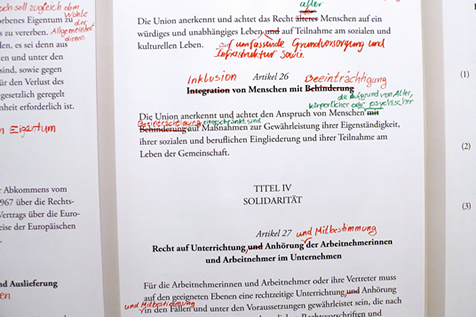 och soll zugleich dem
Wohle
der
Allgemeinheit
dienen
orbenes Eigentum zu
zu vererben.
den, es sei denn aus
en und unter den
sind, sowie gegen
für den Verlust des
gesetzlich geregelt
nheit erforderlich ist.
n Eigentum
Abkommens vom
967 über die Rechts-
Vertrags über die Euro-
eise der Europäischen
nd Auslieferung
aller
Die Union anerkennt und achtet das Recht älterer Menschen auf ein
würdiges und unabhängiges Leben und auf Teilnahme am sozialen und
kulturellen Leben.
auf umfassende Grundversorgung und
Infrastruktur sowie
Inklusion
Artikel 26
Beeinträchtigung
Integration von Menschen mit Behinderung
die aufgrund von Alter,
körperlicher oder psychischer
Die Union anerkennt und achtet den Anspruch von Menschen mit
eingeschränkt sind
Behinderung auf Maßnahmen zur Gewährleistung ihrer Eigenständigkeit,
ihrer sozialen und beruflichen Eingliederung und ihrer Teilnahme am
Leben der Gemeinschaft.
TITEL IV
SOLIDARITÄT
Artikel 27
und Mitbestimmung
Recht auf Unterrichtung und Anhörung der Arbeitnehmerinnen
und Arbeitnehmer im Unternehmen
Für die Arbeitnehmerinnen und Arbeitnehmer oder ihre Vertreter muss
auf den geeigneten Ebenen eine rechtzeitige Unterrichtung und Anhörung
und Mitbestimmung
in den Fällen und unter den Voraussetzungen gewährleistet sein, die nach
(1)
(2)
(3)